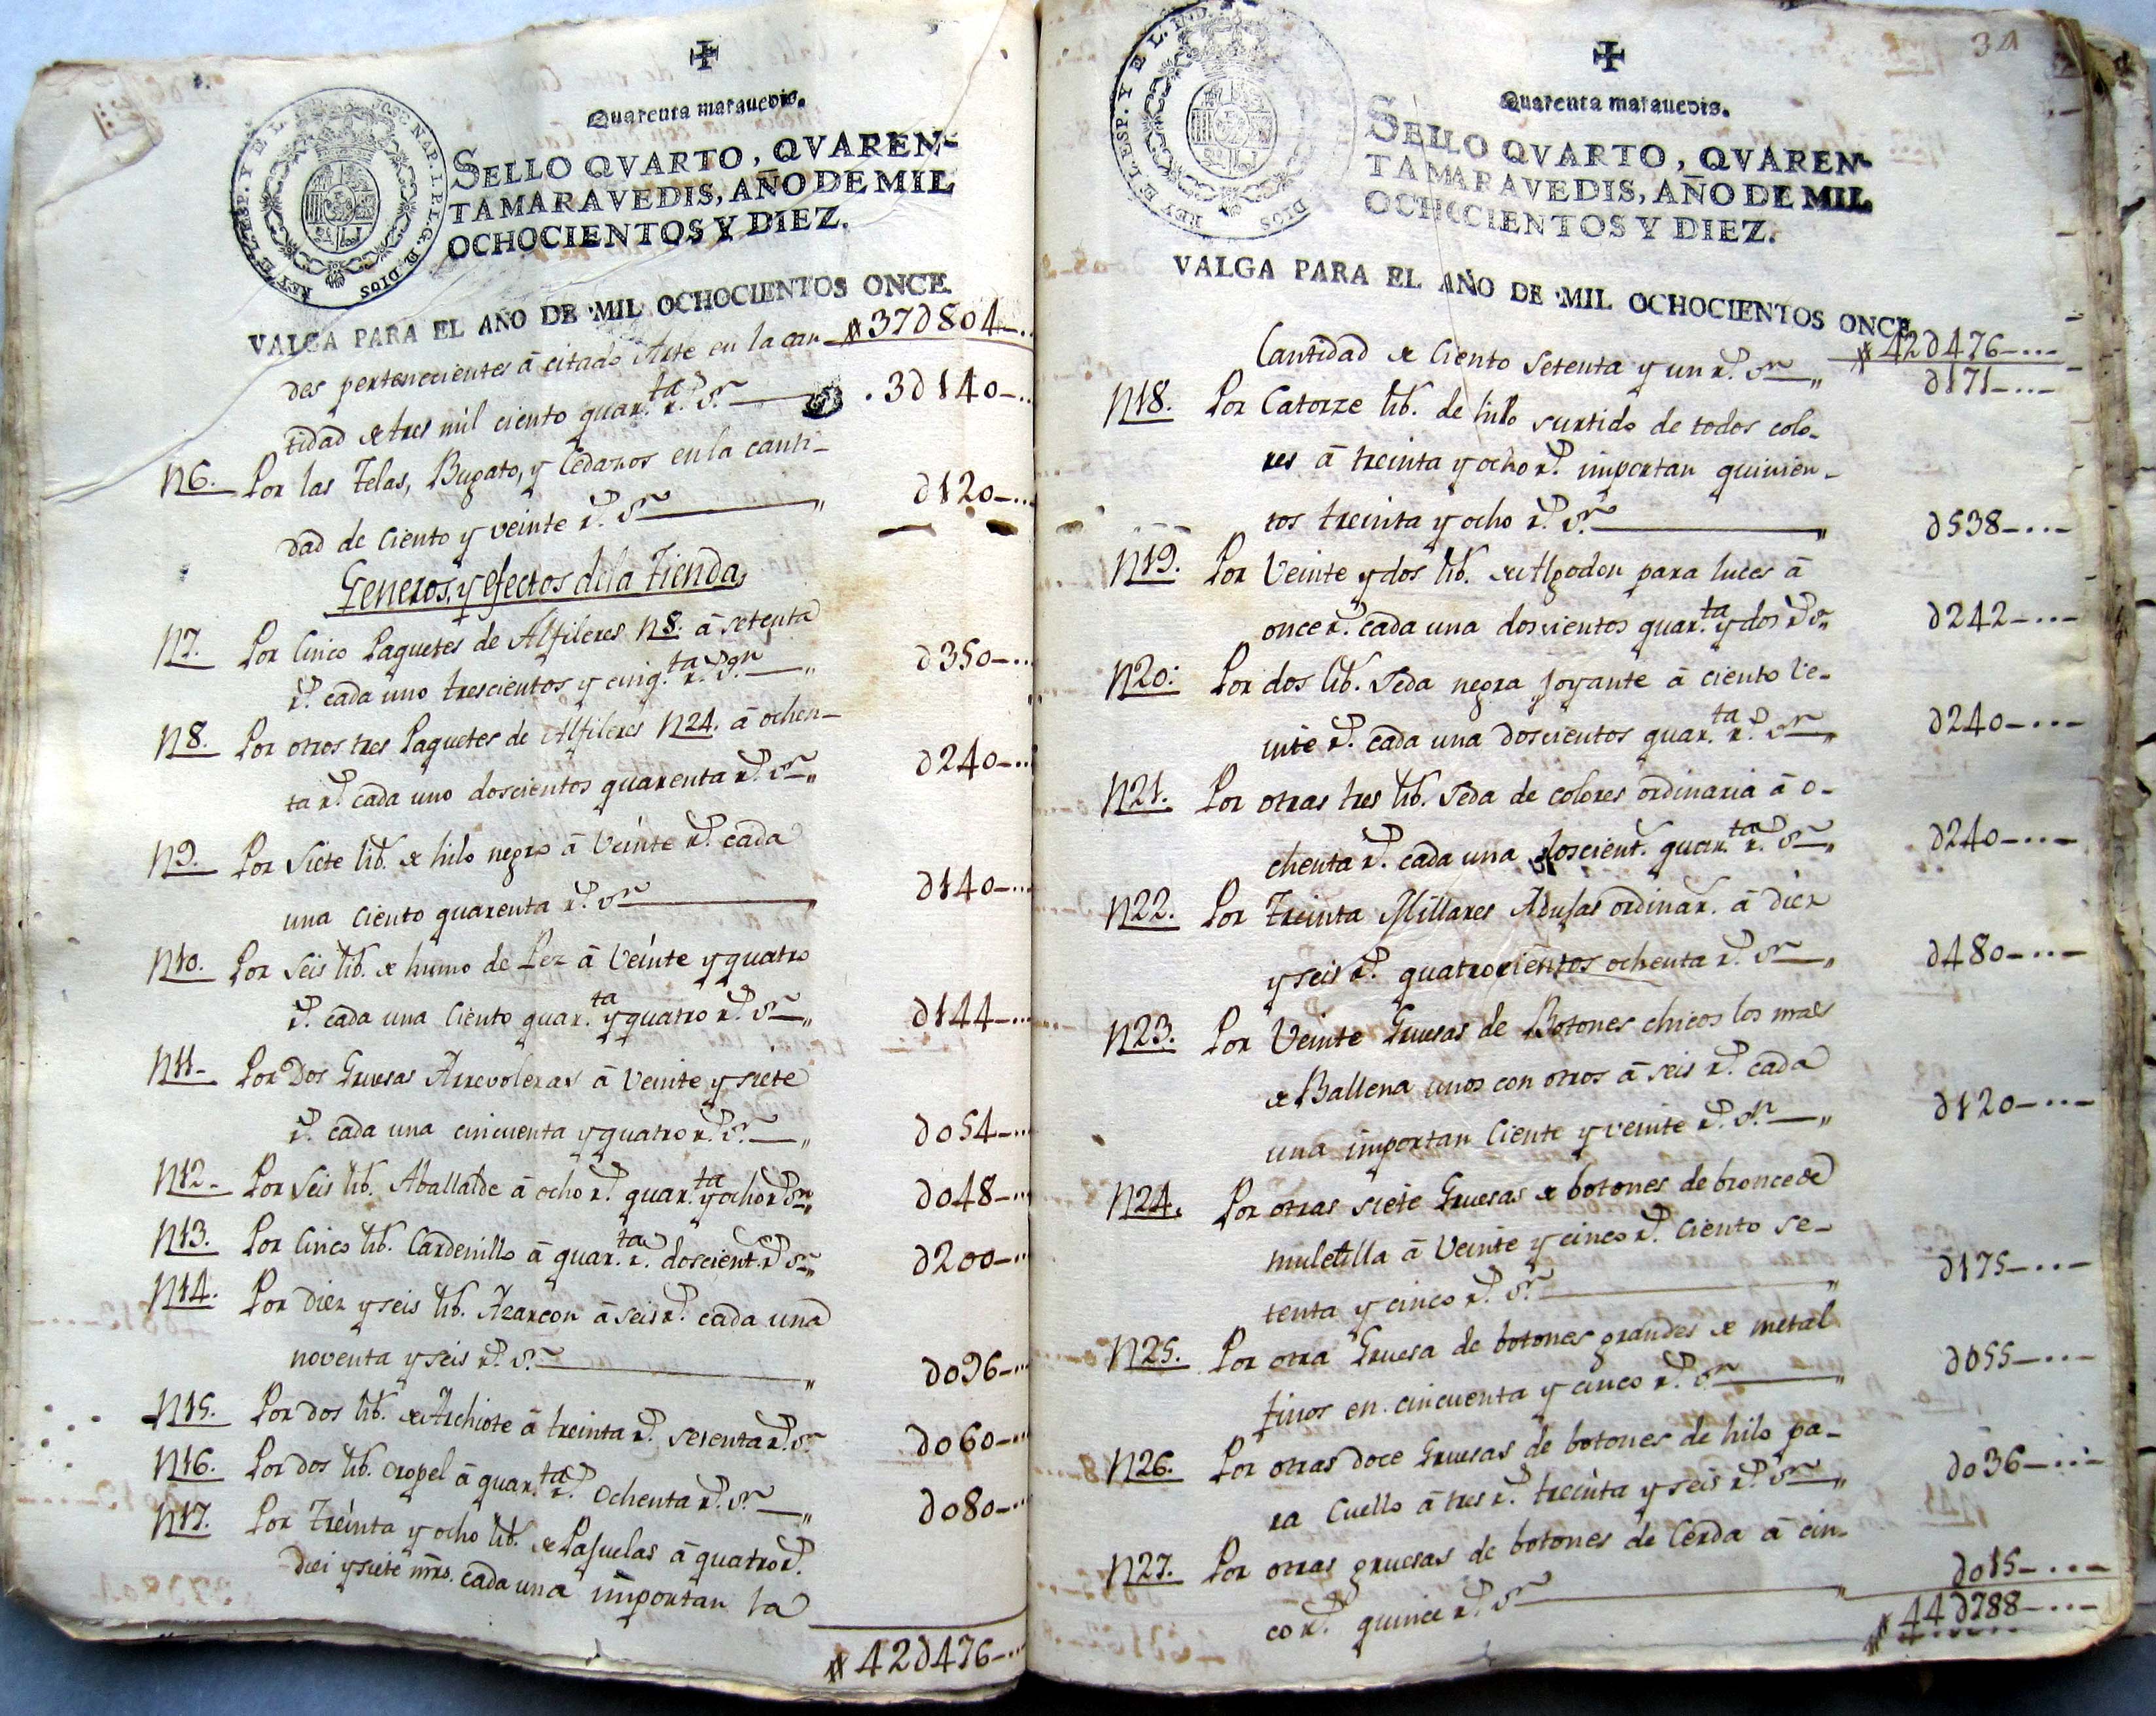 Quarenta marauedis.
SELLO QVARTO, QVAREN-
TAMARAVEDIS, AÑO DE MIL
OCHOCIENTOS Y DIEZ.
VALGA PARA EL AÑO DE MIL OCHOCIENTOS ONCE.
# 37d804
des pertenecientes â citado Arte en la can-
tidad de tres mil ciento quar.ta r.s v.n 3d140
N6. Por las Telas, Bugato, y Cedazos en la canti-
dad de Ciento y veinte r.s v.n d120
Generos, y efectos de la Tienda,
N7. Por Cinco Paquetes de Alfileres N8. â setenta
r.s cada uno trescientos y cinq.ta r.s v.n d350
N8. Por otros tres Paquetes de Alfileres N24. â ochen-
ta r.s cada uno doscientos quarenta r.s v.n d240
N9. Por Siete lib. de hilo negro â Veinte r.s cada
una Ciento quarenta r.s v.n d140
N10. Por Seis lib. de humo de Pez â Veinte y quatro
r.s cada una Ciento quar.ta y quatro r.s v.n d144
N11. Por Dos Gruesas Arrevoleras â Veinte y siete
r.s cada una cincuenta y quatro r.s v.n d054
N12. Por Seis lib. Aballalde â ocho r.s quar.ta y ocho r.s v.n d048
N13. Por Cinco lib. Cardenillo â quar.ta r.s doscient. r.s v.n d200
N14. Por Diez y seis lib. Azarcon â seis r.s cada una
noventa y seis r.s v.n d096
N15. Por dos lib. de Achiote â treinta r.s sesenta r.s v.n d060
N16. Por dos lib. Oropel â quar.ta r.s Ochenta r.s v.n d080
N17. Por Treinta y ocho lib. de Pajuelas â quatro r.s
Diei y siete mrs. cada una importan la
# 42d476
34
Quarenta marauedis.
SELLO QVARTO, QVAREN-
TAMARAVEDIS, AÑO DE MIL
OCHOCIENTOS Y DIEZ.
VALGA PARA EL AÑO DE MIL OCHOCIENTOS ONCE
# 42d476
Cantidad de Ciento Setenta y un r.s v.n d171
N18. Por Catorze lib. de hilo surtido de todos colo-
res â treinta y ocho r.s importan quinien-
tos treinta y ocho r.s v.n d538
N19. Por Veinte y dos lib. de Algodon para luces â
once r.s cada una doscientos quar.ta y dos r.s v.n d242
N20. Por dos lib. Seda negra Joyante â ciento ve-
inte r.s cada una Doscientos quar.ta r.s v.n d240
N21. Por otras tres lib. Seda de colores ordinaria â o-
chenta r.s cada una Doscient. quar.ta r.s v.n d240
N22. Por Treinta Millares Abujas ordinar. â diez
y seis r.s quatrocientos ochenta r.s v.n d480
N23. Por Veinte Gruesas de Botones chicos los mas
de Ballena unos con otros â seis r.s cada
una importan Ciento y veinte r.s v.n d120
N24. Por otras siete Gruesas de botones de bronce de
muletilla â Veinte y cinco r.s Ciento Se-
tenta y cinco r.s v.n d175
N25. Por otra Gruesa de botones grandes de metal
finos en cincuenta y cinco r.s v.n d055
N26. Por otras doce Gruesas de botones de hilo pa-
ra Cuello â tres r.s treinta y seis r.s v.n d036
N27. Por otras gruesas de botones de Cerda â cin-
co r.s quince r.s v.n d015
# 44d788